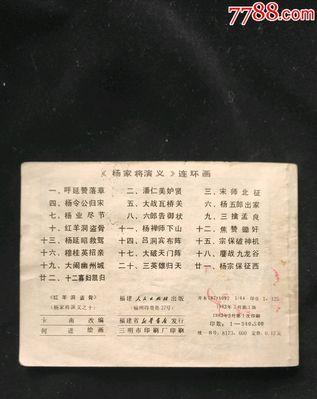 7788.com
《杨家将演义》连环画
一、呼延赞落草 二、潘仁美妒贤 三、宋师北征
四、杨令公归宋 五、大战瓦桥关 六、杨五郎出家
七、杨业尽节 八、六郎告御状 九、三擒孟良
十、红羊洞盗骨 十一、杨禅师下山 十二、焦赞锄奸
十三、杨延昭救驾 十四、吕洞宾布阵 十五、宗保破神机
十六、穆桂英招亲 十七、大破天门阵 十八、鏖战九龙谷
十九、大闹幽州城 二十、三英雄归天 廿一、杨宗保征西
廿二、十二寡妇凯归
《红羊洞盗骨》
(杨家将演义之十)
福建人民出版社出版
(福州得贵巷27号)
福建省新华书店发行
三明市印刷厂印刷
南改编
何进绘画
印数:1—540,500
定价0.12元